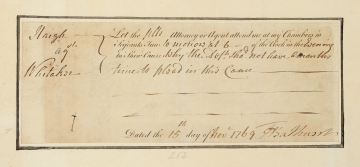 Haigh
agt
Whitaker
Let the Plts Attorney or Agent attend me at my Chambers in
Serjeants Inn to morrow at 6 of the Clock in the Evening
to shew Cause Why the Deft shod not have a months
time to plead in this Cause
Dated the 15th day of Novr 1769 J Bathurst